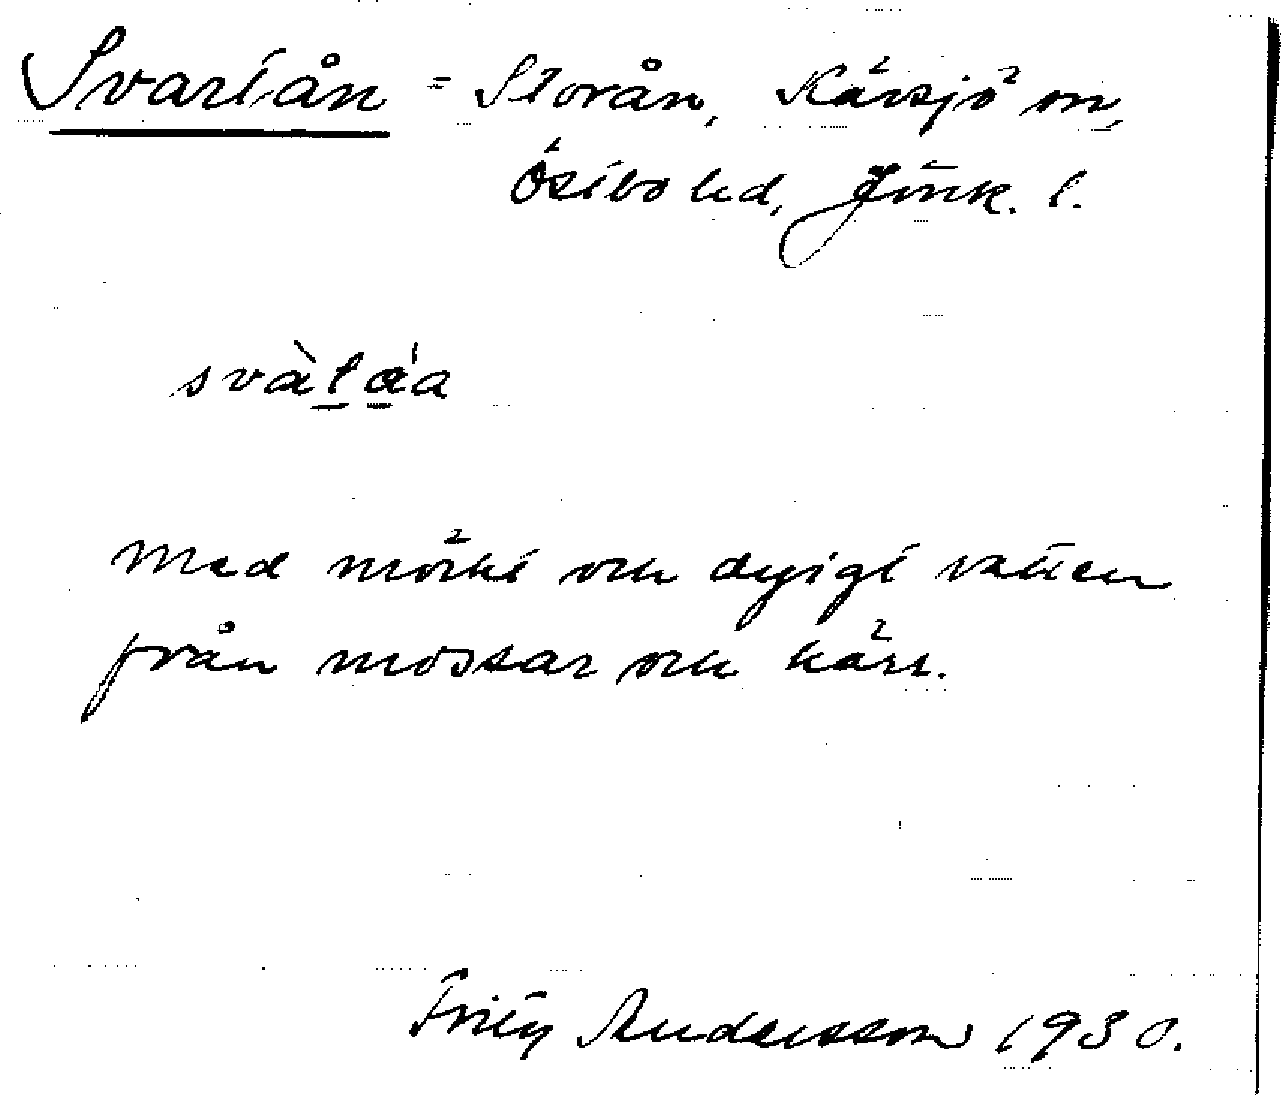 Svartån = Storån, Kävsjö sn,
Östbo hd, Jönk. l.
svàt̲a̲'a
med mörkt och dyigt vatten
från mossar och kärr.
Fritz Andersson 1930.